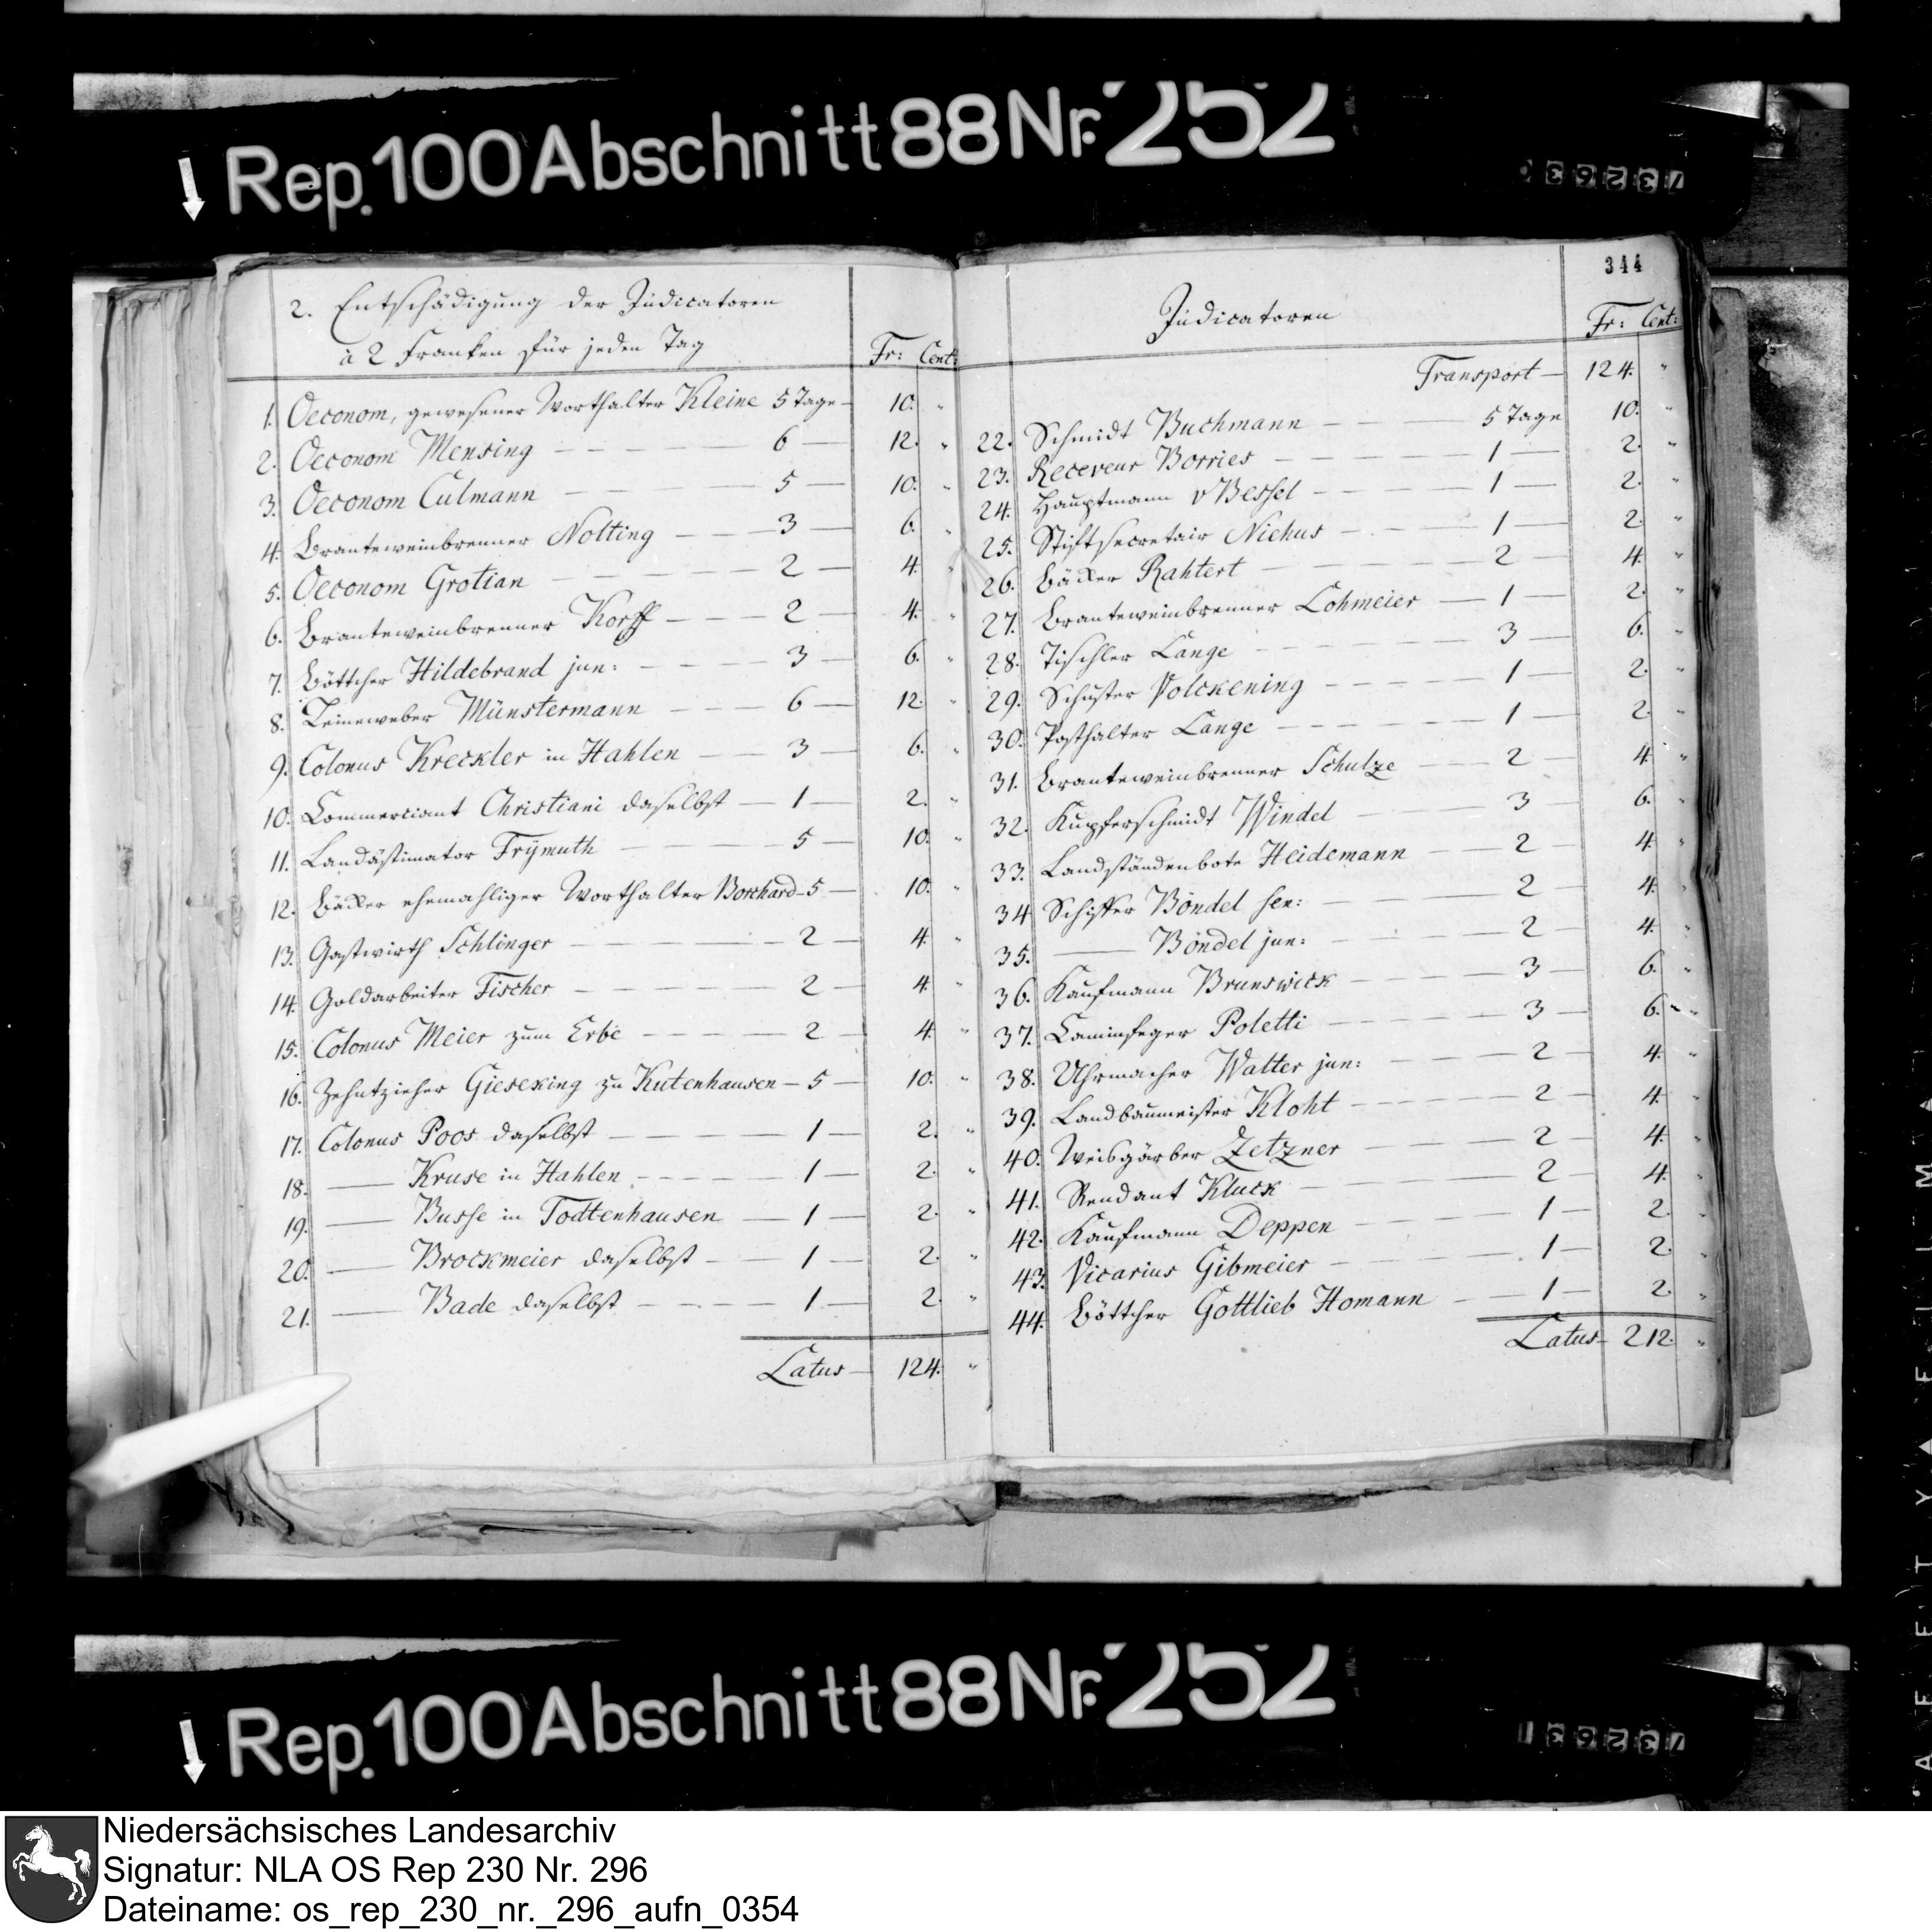 Rep. 100 Abschnitt 88 Nr. 252
2. Entschädigung der Indicatoren
à 2 Franken für jeden Tag
Fr: Cent:
1. Oeconom, gewesener Worthalter Kleine 5 Tage — 10. "
2. Oeconom Mensing — 6 — 12. "
3. Oeconom Culmann — 5 — 10. "
4. Branteweinbrenner Nolting — 3 — 6. "
5. Oeconom Grotian — 2 — 4. "
6. Branteweinbrenner Korff — 2 — 4. "
7. Böttcher Hildebrand jun: — 3 — 6. "
8. Leineweber Münstermann — 6 — 12. "
9. Colonus Kreckler in Hahlen — 3 — 6. "
10. Commerciant Christiani daselbst — 1 — 2. "
11. Landästimator Frÿmuth — 5 — 10. "
12. Bäcker ehemahliger Worthalter Borchard — 5 — 10. "
13. Gastwirth Schlinger — 2 — 4. "
14. Goldarbeiter Fischer — 2 — 4. "
15. Colonus Meier zum Erbe — 2 — 4. "
16. Zehntzieher Gieseking zu Kutenhausen — 5 — 10. "
17. Colonus Poos daselbst — 1 — 2. "
18. — Kruse in Hahlen — 1 — 2. "
19. — Busse in Todtenhausen — 1 — 2. "
20. — Brockmeier daselbst — 1 — 2. "
21. — Bade daselbst — 1 — 2. "
Latus — 124. "
344
Indicatoren
Fr: Cent:
Transport — 124. "
22. Schmidt Buchmann — 5 Tage 10. "
23. Receveur Borries — 1 — 2. "
24. Hauptmann v Bessel — 1 — 2. "
25. Stiftsecretair Niehus — 1 — 2. "
26. Bäcker Rahtert — 2 — 4. "
27. Branteweinbrenner Lohmeier — 1 — 2. "
28. Tischler Lange — 3 — 6. "
29. Schuster Volckening — 1 — 2. "
30. Posthalter Lange — 1 — 2. "
31. Branteweinbrenner Schulze — 2 — 4. "
32. Kupferschmidt Windel — 3 — 6. "
33. Landständenbote Heidemann — 2 — 4. "
34. Schiffer Böndel sen: — 2 — 4. "
35. — Böndel jun: — 2 — 4. "
36. Kaufmann Brunswick — 3 — 6. "
37. Caminfeger Poletti — 3 — 6. "
38. Uhrmacher Walter jun: — 2 — 4. "
39. Landbaumeister Kloht — 2 — 4. "
40. Weisgärber Zetzner — 2 — 4. "
41. Rendant Kluck — 2 — 4. "
42. Kaufmann Deppen — 1 — 2. "
43. Vicarius Gibmeier — 1 — 2. "
44. Böttcher Gottlieb Homann — 1 — 2. "
Latus — 212. "
Rep. 100 Abschnitt 88 Nr. 252
Niedersächsisches Landesarchiv
Signatur: NLA OS Rep 230 Nr. 296
Dateiname: os_rep_230_nr._296_aufn_0354